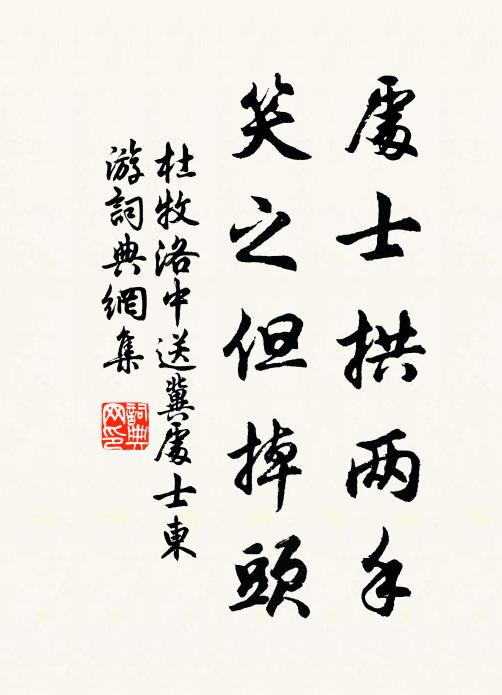 處士拱两手
笑之但掉頭
杜牧洛中送冀處士東
游詞典網集
詞典网印